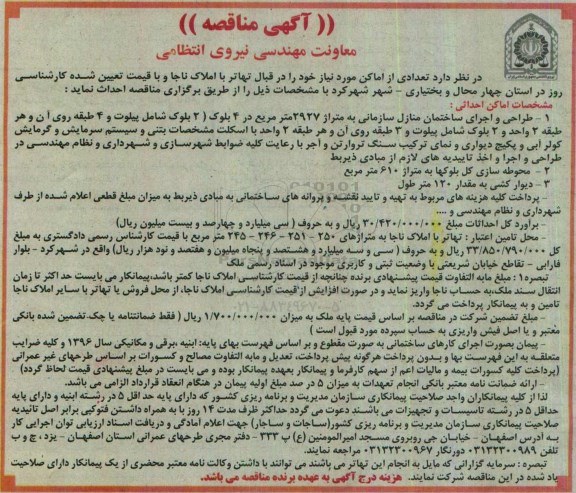 (( آگهی مناقصه ))
معاونت مهندسی نیروی انتظامی
در نظر دارد تعدادی از اماکن مورد نیاز خود را در قبال تهاتر با املاک ناجا و با قیمت تعیین شده کارشناسی
روز در استان چهار محال و بختیاری - شهر شهرکرد با مشخصات ذیل را از طریق برگزاری مناقصه احداث نماید :
مشخصات اماکن احداثی :
۱ - طراحی و اجرای ساختمان منازل سازمانی به متراژ ۲۹۲۷متر مربع در ۴ بلوک ( ۲ بلوک شامل پیلوت و ۴ طبقه روی آن و هر
طبقه ۲ واحد و ۲ بلوک شامل پیلوت و ۳ طبقه روی آن و هر طبقه ۲ واحد با اسکلت مشخصات بتنی و سیستم سرمایش و گرمایش
کولر آبی و پکیج دیواری و نمای ترکیب سنگ تروارتن و آجر با رعایت کلیه ضوابط شهرسازی و شهرداری و نظام مهندسی در
طراحی و اجرا و اخذ تاییدیه های لازم از مبادی ذیربط
۲ - محوطه سازی کل بلوکها به متراژ ۶۱۰ متر مربع
۳ - دیوار کشی به مقدار ۱۲۰ متر طول
- پرداخت کلیه هزینه های مربوط به تهیه و تایید نقشه و پروانه های ساختمانی به مبادی ذیربط به میزان مبلغ قطعی اعلام شده از طرف
شهرداری و نظام مهندسی و ....
- برآورد کل احداثات مبلغ ۳۰/۴۲۰/۰۰۰/۰۰۰ ریال و به حروف ( سی میلیارد و چهارصد و بیست میلیون ریال)
- محل تامین اعتبار : تهاتر با املاک ناجا به متراژهای ۲۵۰ - ۲۵۱ - ۲۴۶ - ۲۴۵ متر مربع با قیمت کارشناس رسمی دادگستری به مبلغ
کل ۳۳/۸۵۰/۷۹۰/۰۰۰ ریال و به حروف ( سی و سه میلیارد و هشتصد و پنجاه میلیون و هفتصد و نود هزار ریال) واقع در شهرکرد - بلوار
فارابی - تقاطع خیابان شریعتی با وضعیت ثبتی و کاربری موجود در اسناد رسمی ملک
تبصره۱ : مبلغ مابه التفاوت قیمت پیشنهادی برنده چنانچه از قیمت کارشناسی املاک ناجا کمتر باشد،پیمانکار می بایست حد اکثر تا زمان
انتقال سند ملک،به حساب ناجا واریز نماید و در صورت افزایش از قیمت کارشناسی املاک ناجا، از محل فروش یا تهاتر با سایر املاک ناجا
تامین و به پیمانکار پرداخت می گردد.
- مبلغ تضمین شرکت در مناقصه بر اساس قیمت پایه ملک به میزان ۱/۷۰۰/۰۰۰/۰۰۰ ریال ( فقط ضمانتنامه یا چک تضمین شده بانکی
معتبر و یا اصل فیش واریزی به حساب سپرده مورد قبول است )
- پیمان بصورت اجرای کارهای ساختمانی به صورت مقطوع و بر اساس فهرست بهای پایه: ابنیه ،برقی و مکانیکی سال ۱۳۹۶ و کلیه ضرایب
متعلقه به این فهرست بها و بدون پرداخت هرگونه پیش پرداخت، تعدیل و مابه التفاوت مصالح و کسورات بر اساس طرحهای غیر عمرانی
(پرداخت کلیه کسورات بیمه و مالیات اعم از سهم کارفرما و پیمانکار بعهده پیمانکار بوده و می بایست در مبلغ پیشنهادی قیمت لحاظ گردد)
- ارائه ضمانت نامه معتبر بانکی انجام تعهدات به میزان ۵ در صد مبلغ اولیه پیمان در هنگام انعقاد قرارداد الزامی می باشد.
لذا از کلیه پیمانکاران واجد صلاحیت پیمانکاری سازمان مدیریت و برنامه ریزی کشور که دارای پایه حداقل ۵ در رشته ابنیه و دارای پایه
حداقل ۵ در رشته تاسیسات و تجهیزات می باشند دعوت می گردد حداکثر ظرف مدت ۱۴ روز با به همراه داشتن فتوکپی برابر اصل تائیدیه
صلاحیت پیمانکاری سازمان مدیریت و برنامه ریزی کشور(ساجات و ساجار) جهت اعلام آمادگی و دریافت اسناد ارزیابی توان اجرایی کار
به آدرس اصفهان - خیابان جی روبروی مسجد امیرالمومنین (ع) پ ۳۳۳ - دفتر مجری طرحهای عمرانی استان اصفهان - یزد ، چ و ب
تلفن ۰۳۱۳۲۳۰۰۹۸۹ دورنگار ۰۳۱۳۲۳۰۰۹۶۷ مراجعه نمایند.
تبصره : سرمایه گزارانی که مایل به انجام این تهاتر می باشند می توانند با داشتن وکالت نامه معتبر محضری از یک پیمانکار دارای صلاحیت
یاد شده در این مناقصه شرکت نمایند. هزینه درج آگهی به عهده برنده مناقصه می باشد.